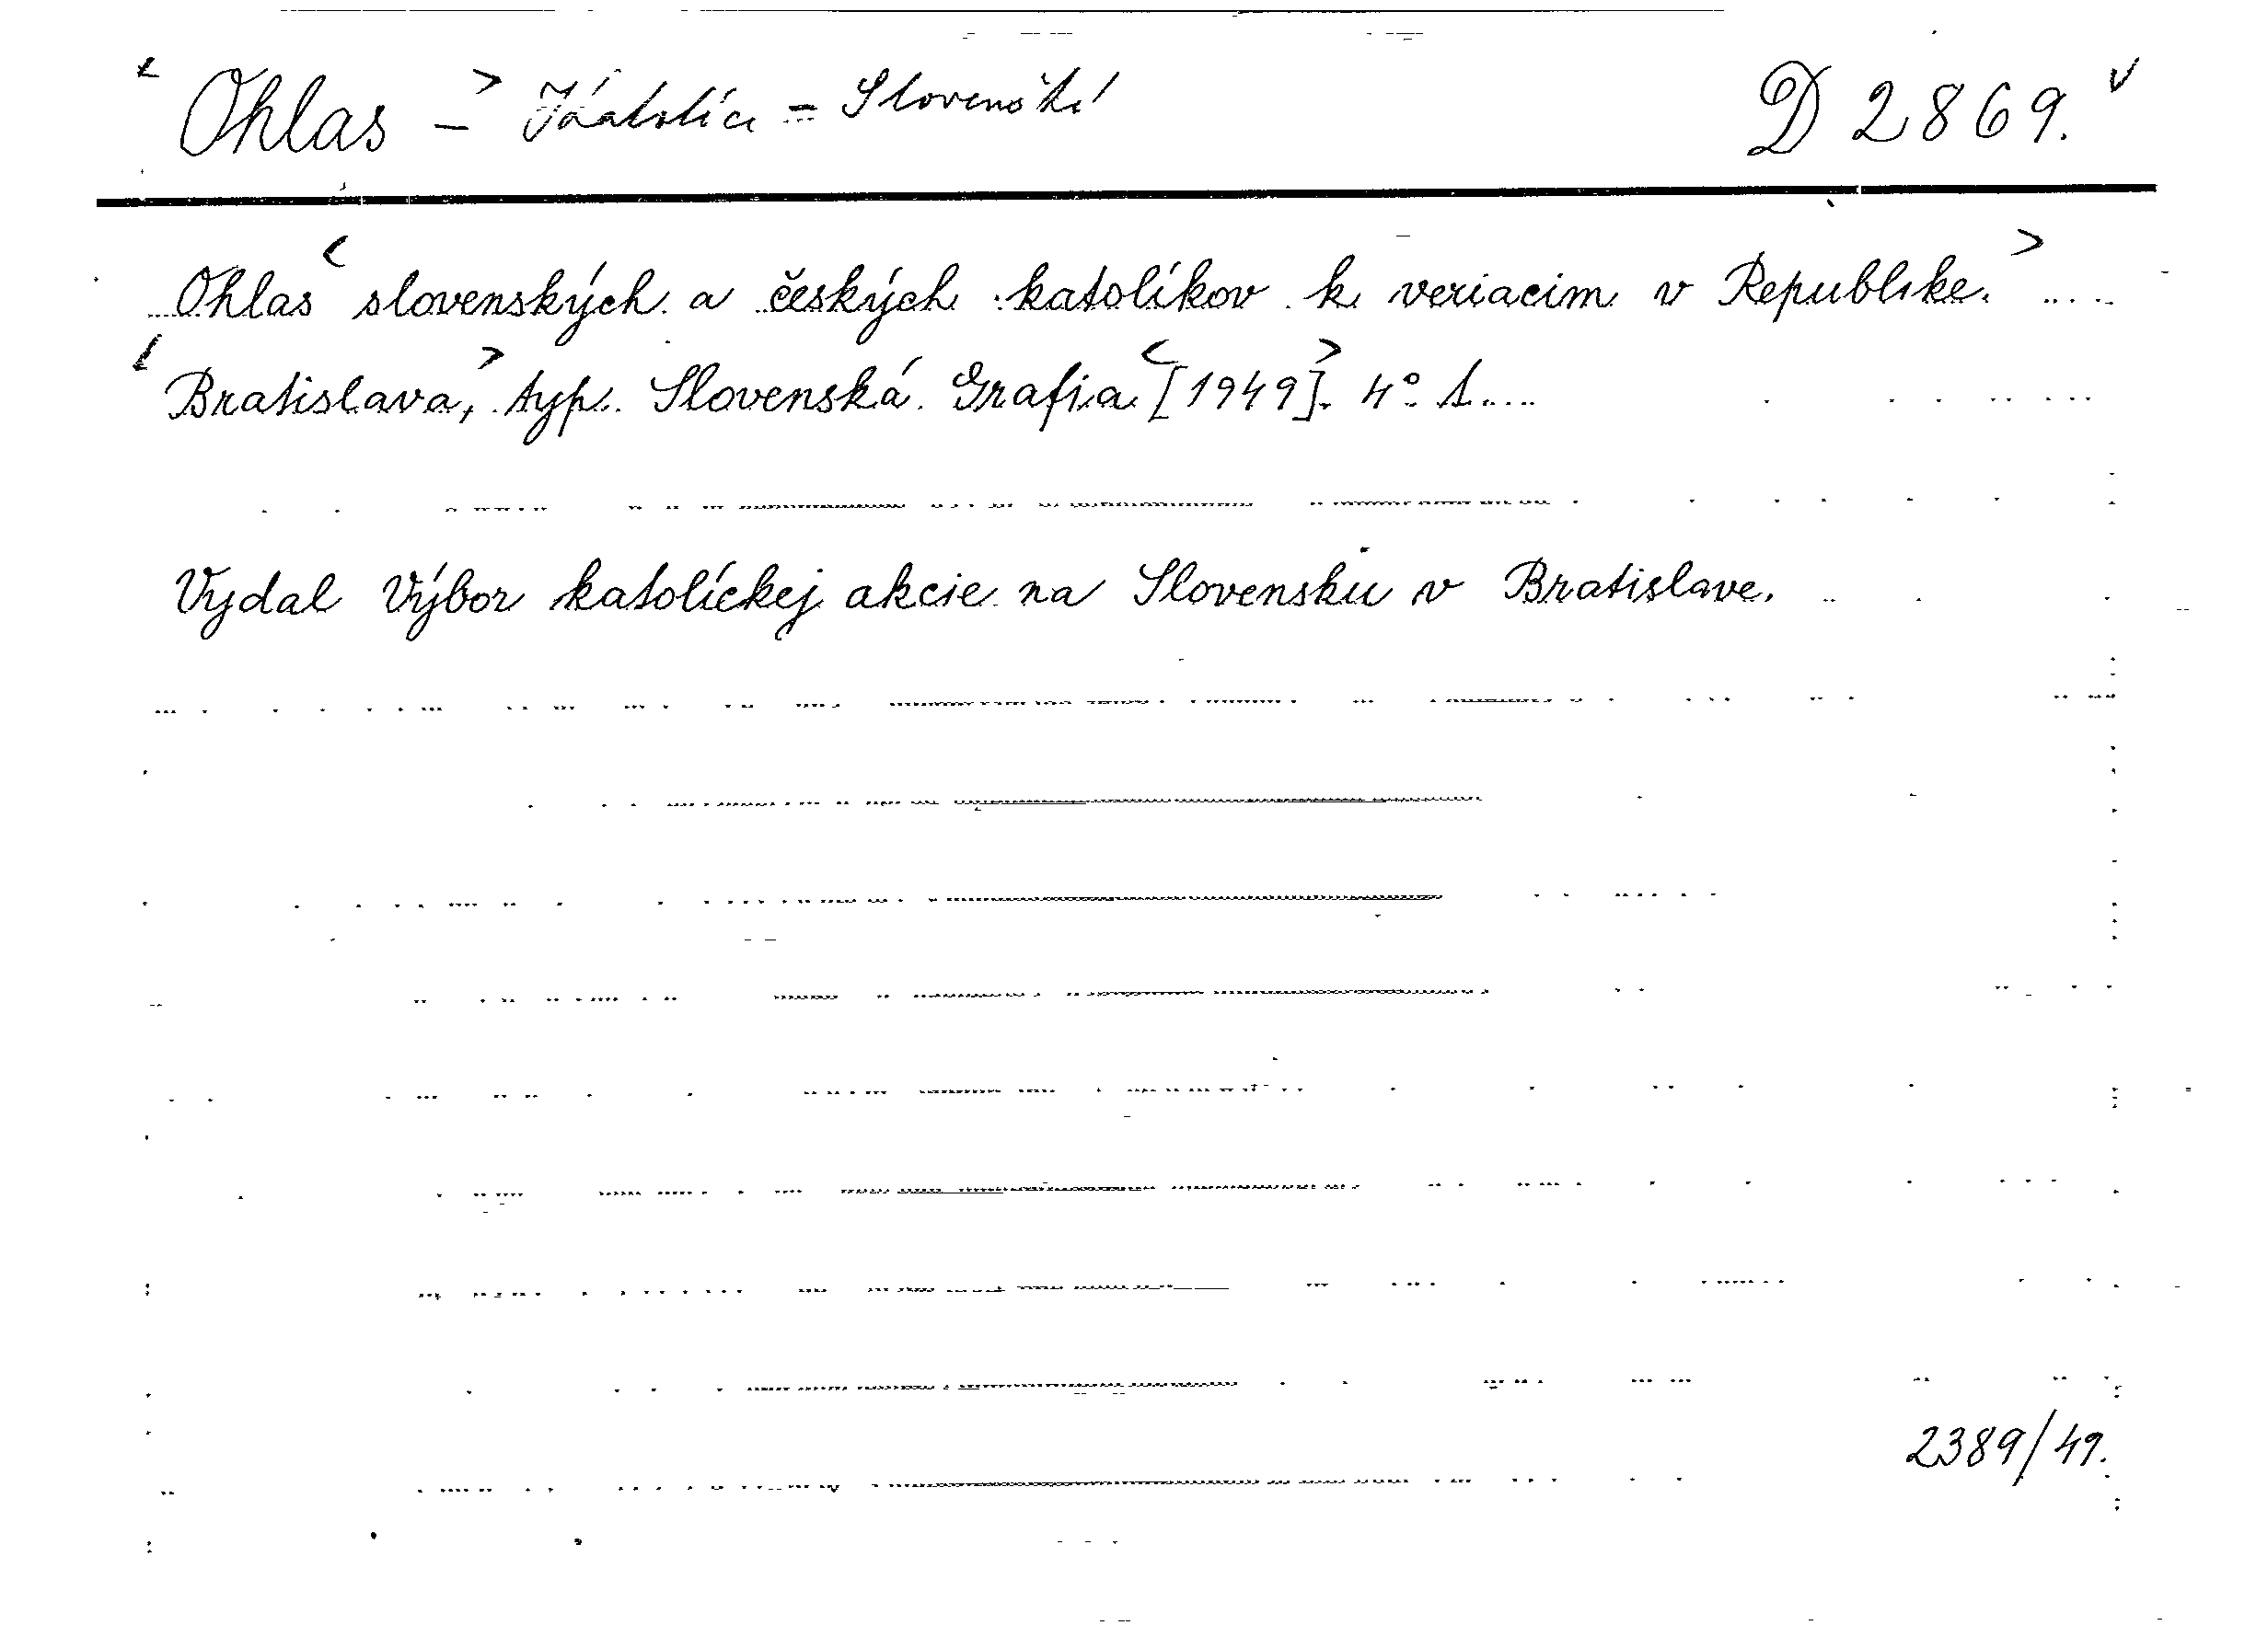 Ohlas - Katolíci = Slovenští D 2869.
Ohlas slovenských a českých katolíkov k veriacim v Republike.
Bratislava, typ. Slovenská Grafia [1949]. 4° 1.
Vydal Výbor katolíckej akcie na Slovensku v Bratislave.
2389/49.